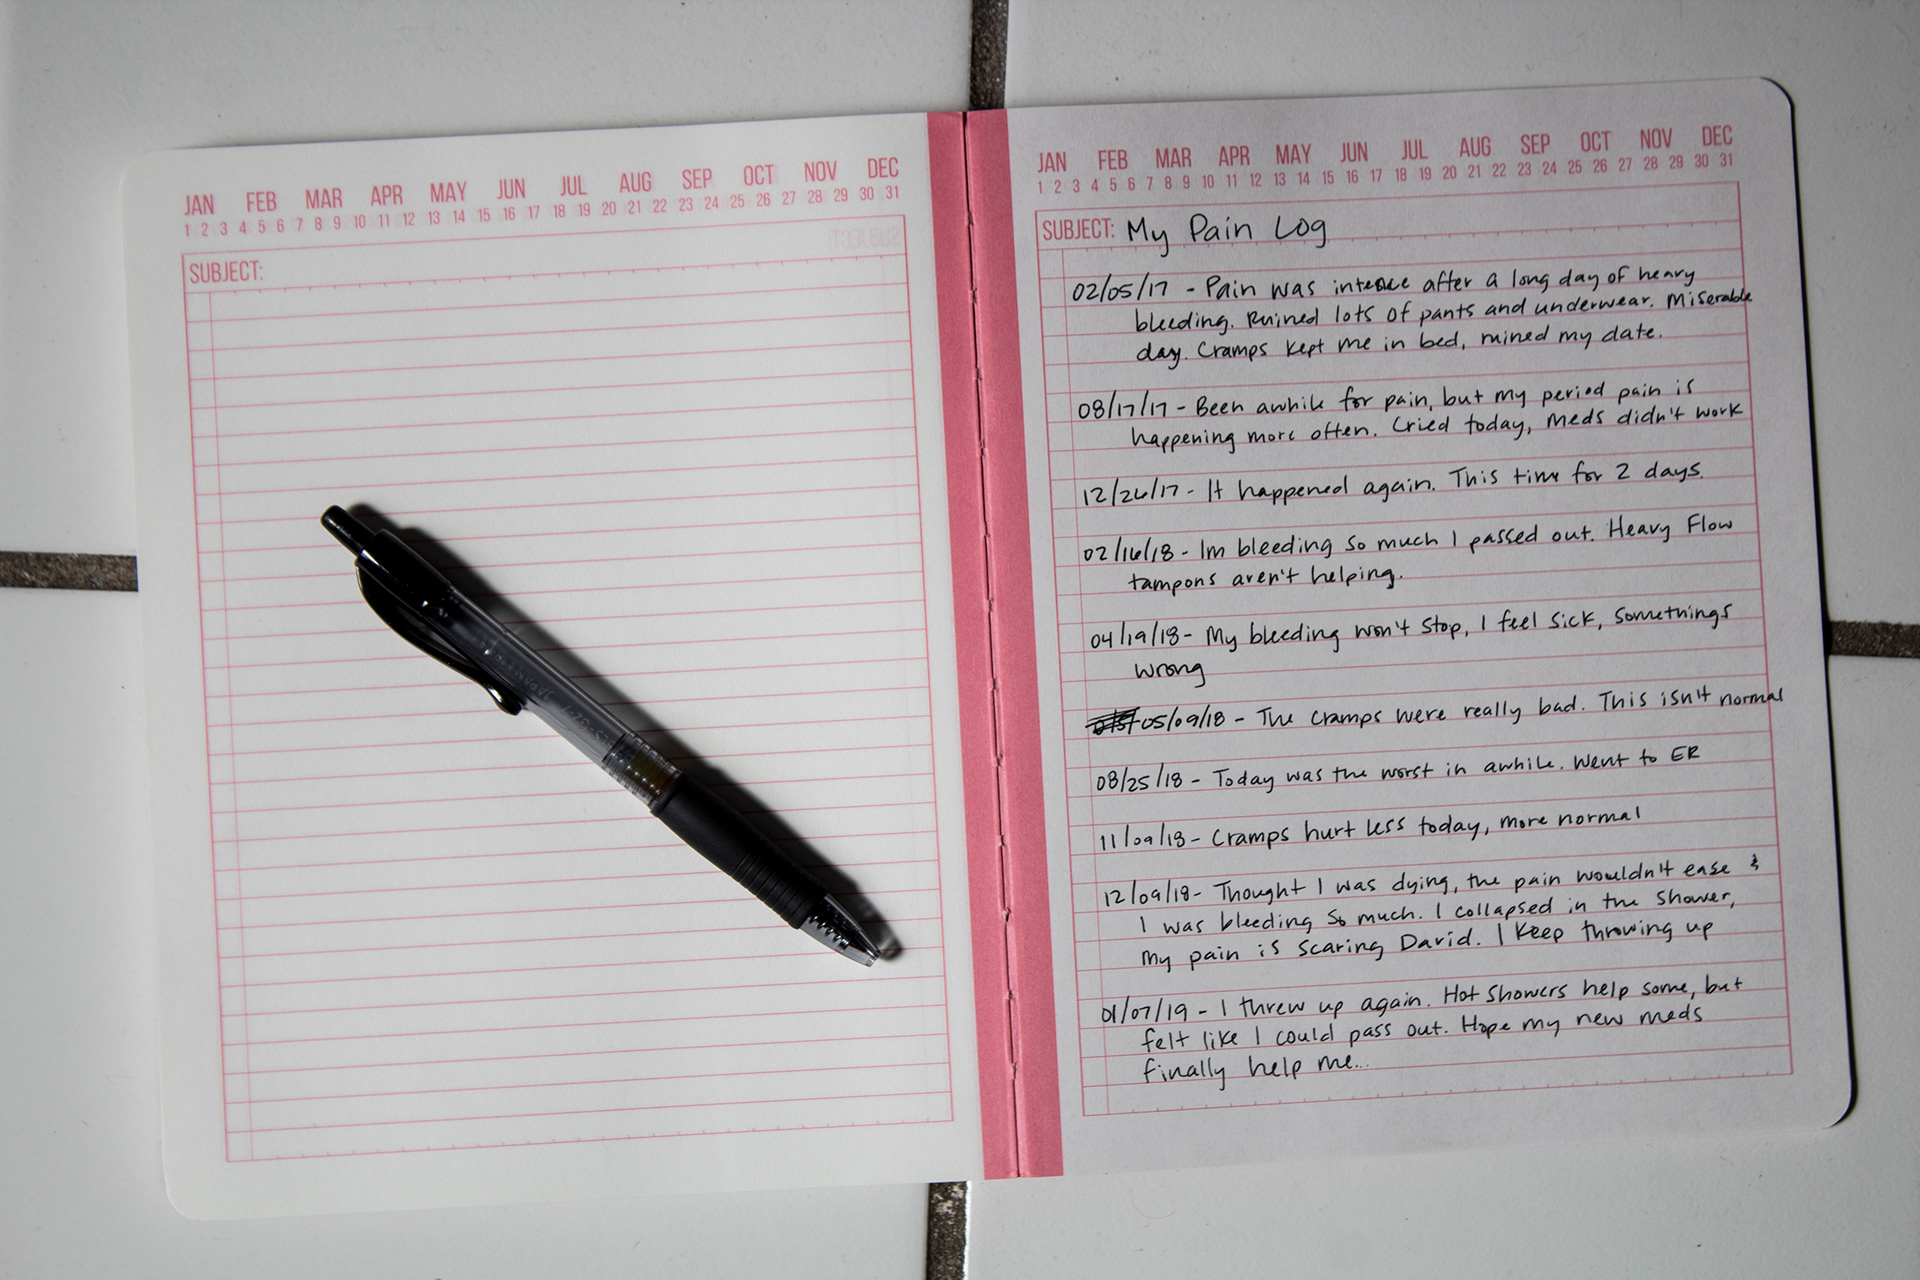 JAN FEB MAR APR MAY JUN JUL AUG SEP OCT NOV DEC
1 2 3 4 5 6 7 8 9 10 11 12 13 14 15 16 17 18 19 20 21 22 23 24 25 26 27 28 29 30 31
SUBJECT:
JAN FEB MAR APR MAY JUN JUL AUG SEP OCT NOV DEC
1 2 3 4 5 6 7 8 9 10 11 12 13 14 15 16 17 18 19 20 21 22 23 24 25 26 27 28 29 30 31
SUBJECT: My Pain Log
02/05/17 - Pain was intense after a long day of heavy
bleeding. Ruined lots of pants and underwear. Miserable
day. Cramps kept me in bed, ruined my date.
08/17/17 - Been awhile for pain, but my period pain is
happening more often. Cried today, meds didn't work
12/26/17 - It happened again. This time for 2 days.
02/16/18 - Im bleeding so much I passed out. Heavy Flow
tampons aren't helping.
04/19/18 - My bleeding won't stop, I feel sick, somethings
wrong
05/09/18 - The cramps were really bad. This isn't normal
08/25/18 - Today was the worst in awhile. Went to ER
11/09/18 - Cramps hurt less today, more normal
12/09/18 - Thought I was dying, the pain wouldn't ease &
I was bleeding so much. I collapsed in the shower,
my pain is scaring David. I keep throwing up
01/07/19 - I threw up again. Hot showers help some, but
felt like I could pass out. Hope my new meds
finally help me...